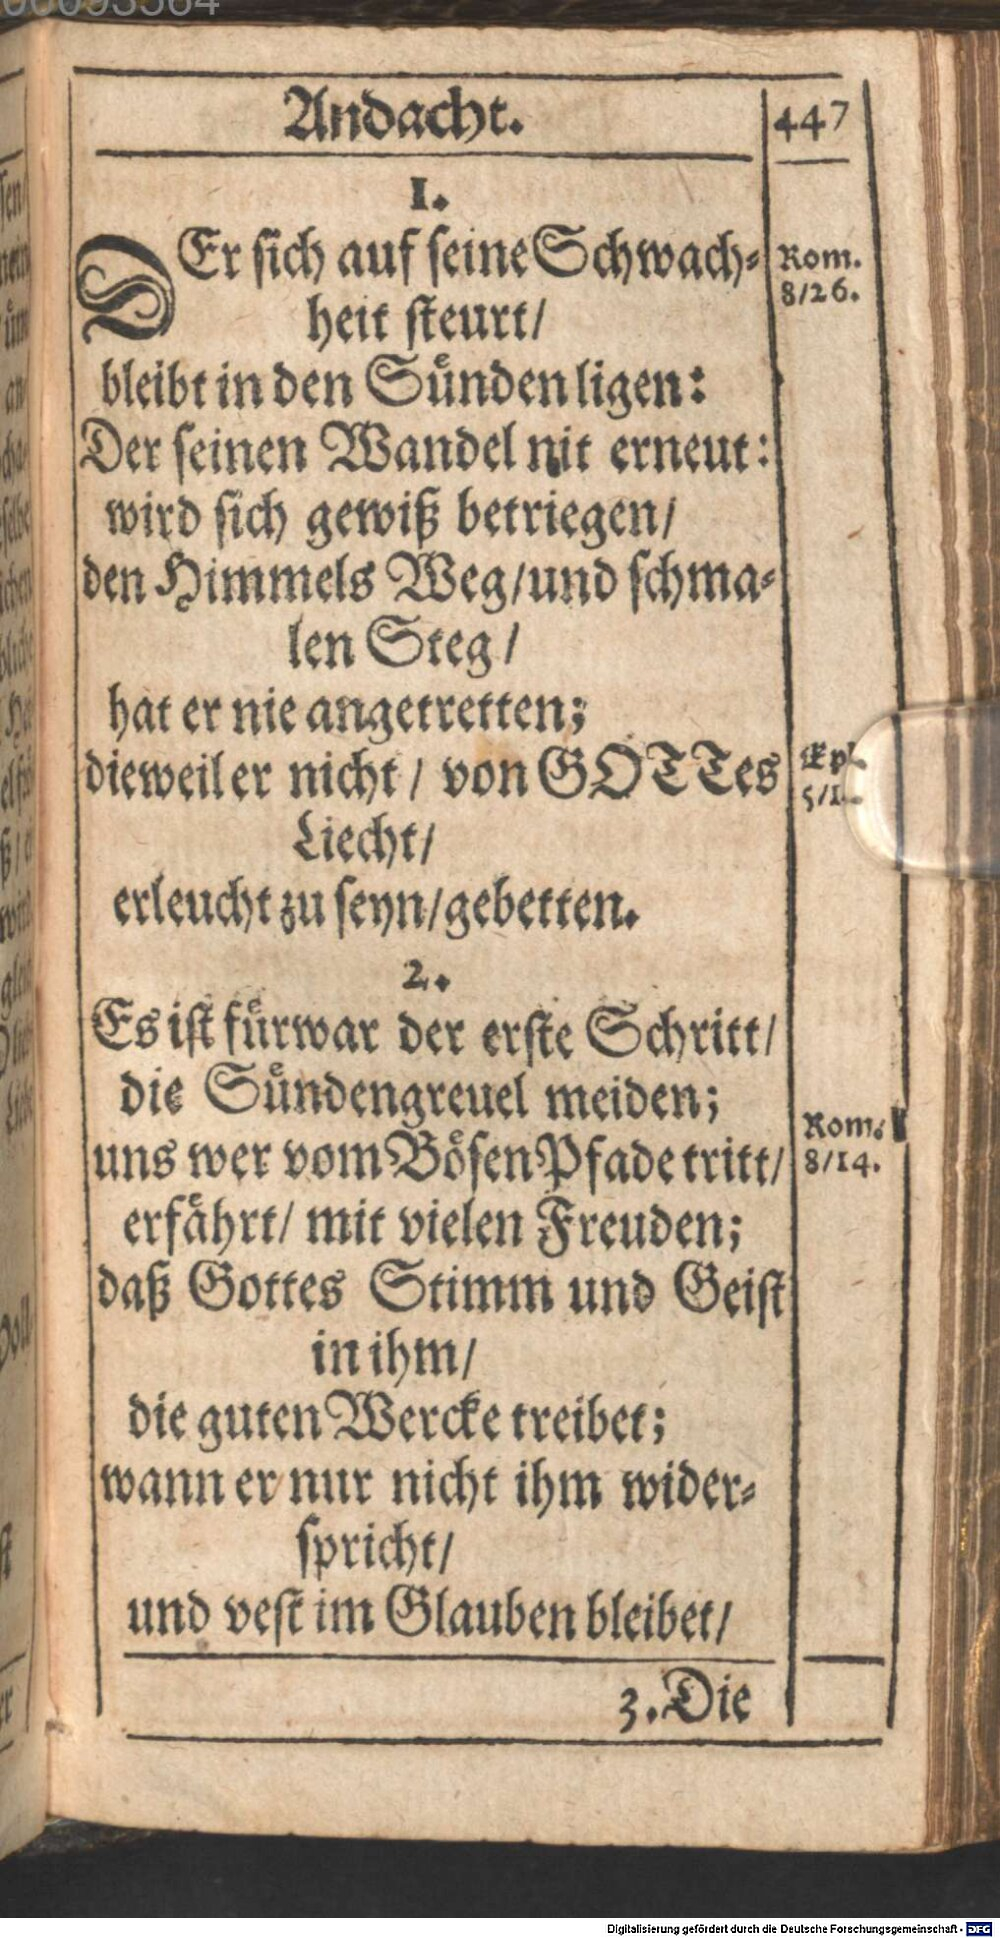 Andacht. 447
1.
DEr sich auf seine Schwach-
heit steurt/
bleibt in den Sünden ligen:
Der seinen Wandel nit erneut:
wird sich gewiß betriegen/
den Himmels Weg/und schma-
len Steg/
hat er nie angetretten;
dieweil er nicht/ von GOTTes
Liecht/
erleucht zu seyn/gebetten.
2.
Es ist fürwar der erste Schritt/
die Sündengreuel meiden;
uns wer vom Bösen Pfade tritt/
erfährt/ mit vielen Freuden;
daß Gottes Stimm und Geist
in ihm/
die guten Wercke treibet;
wann er nur nicht ihm wider-
spricht/
und vest im Glauben bleibet/
3. Die
Rom.
8/26.
Rom.
8/14.
Digitalisierung gefördert durch die Deutsche Forschungsgemeinschaft - DFG